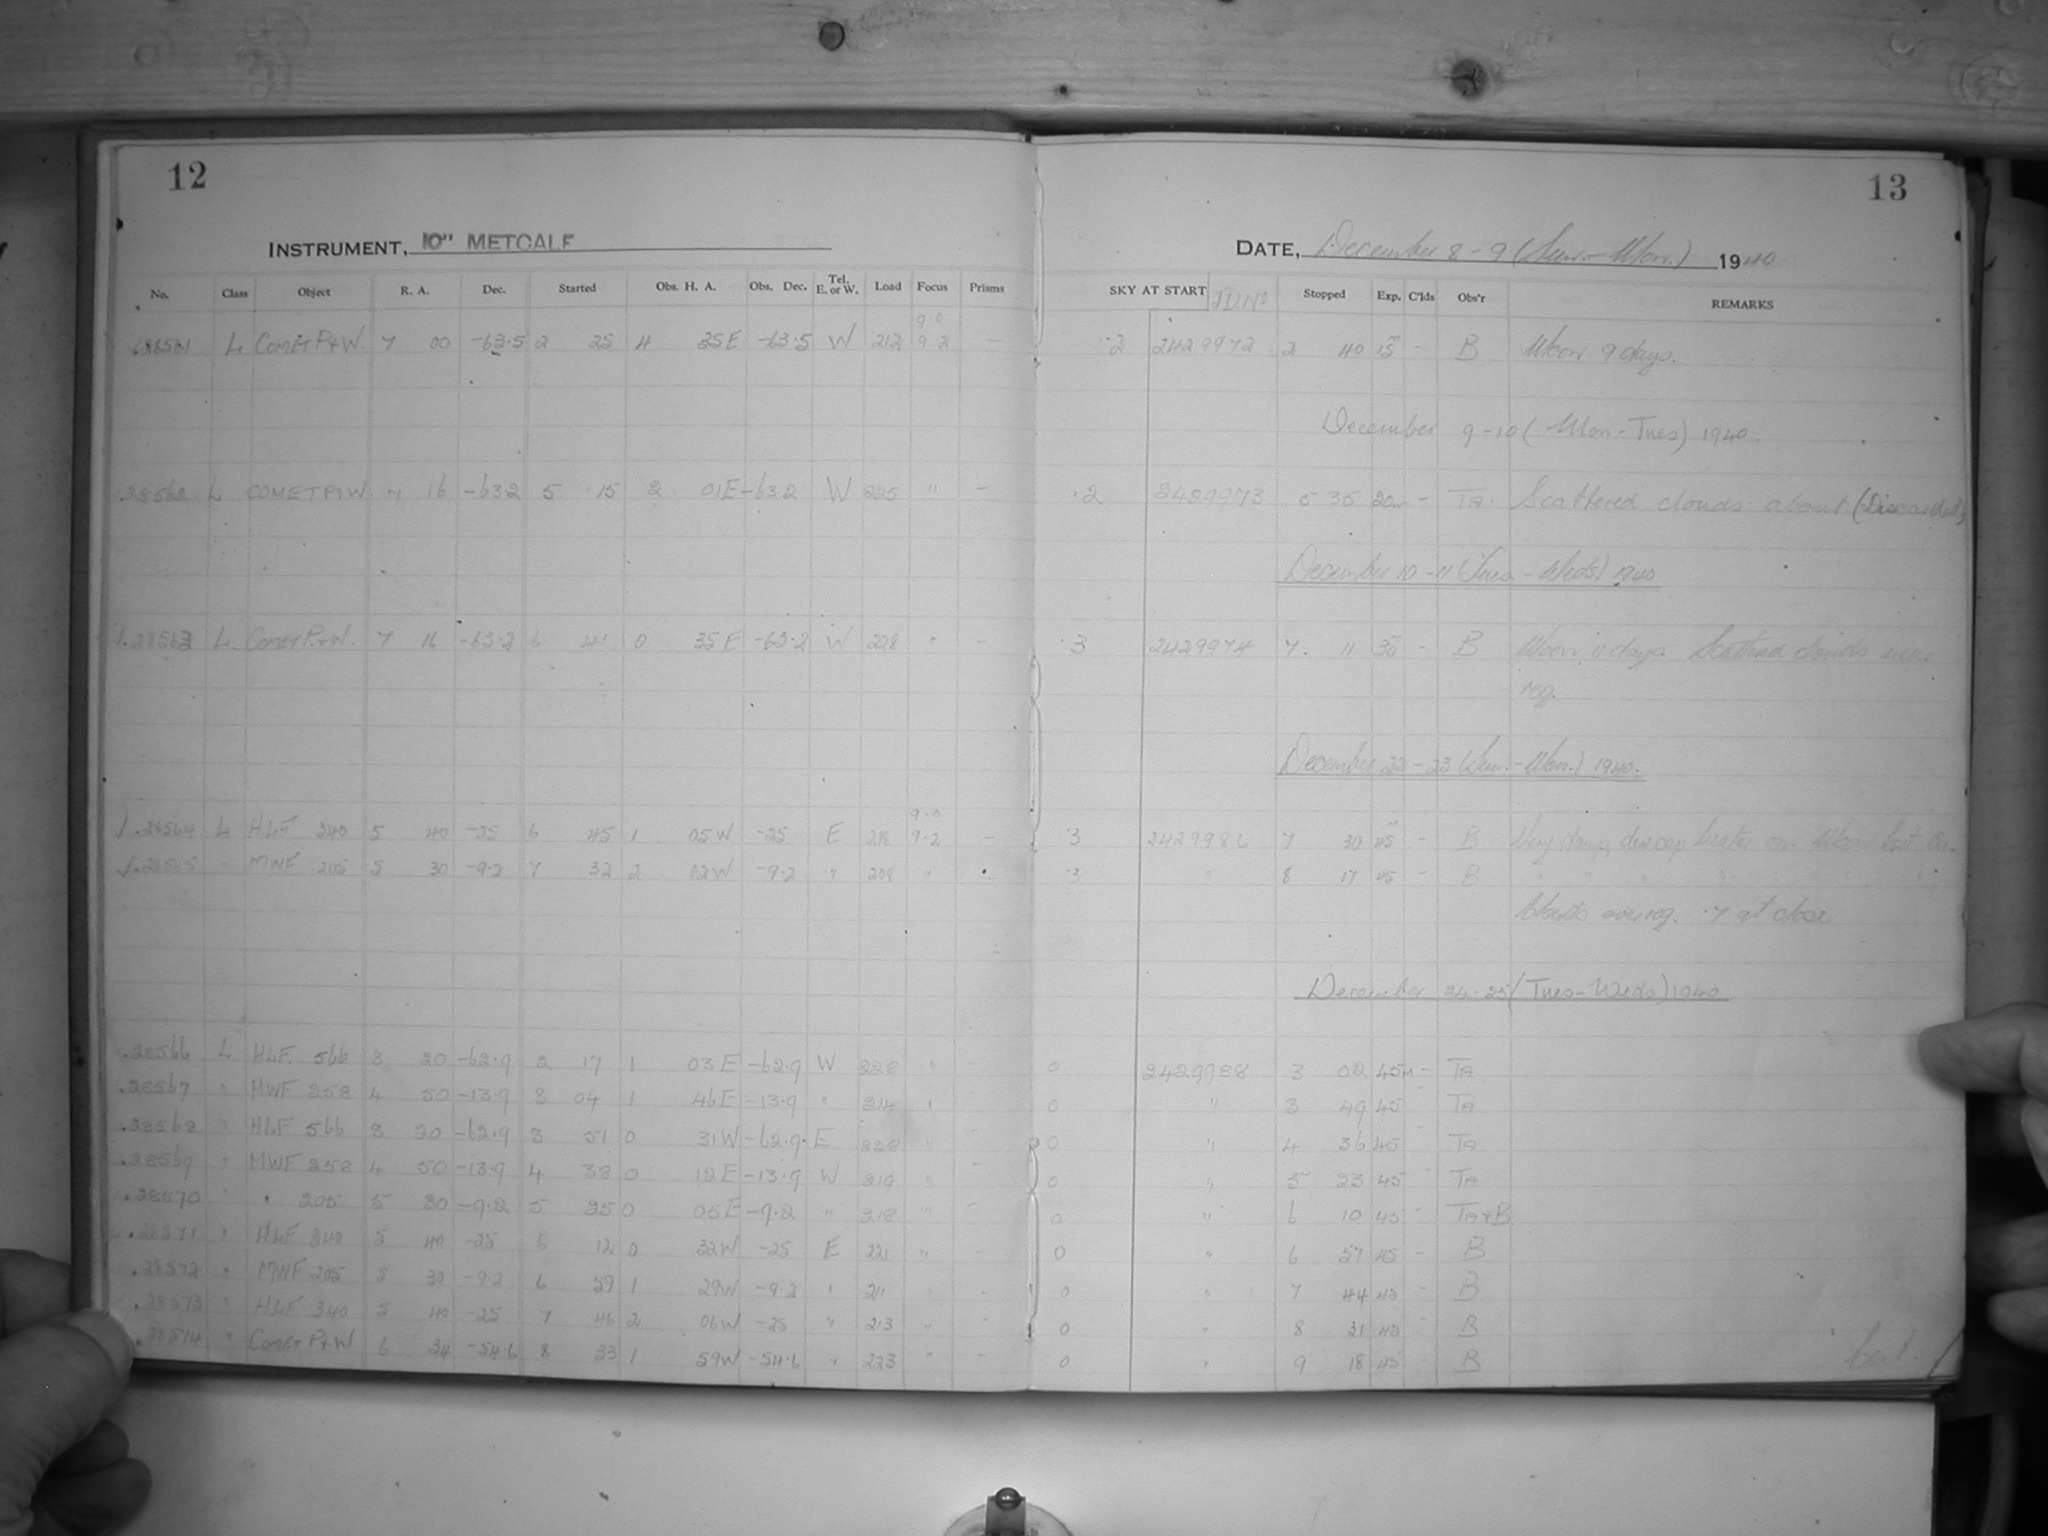 12
INSTRUMENT, 10" METCALF
No. Class Object R. A. Dec. Started Obs. H. A. Obs. Dec. Tel. E. or W. Load Focus Prisms
9.0
28561 L COMET P+W. 7 00 -63.5 2 25 4 35E -63.5 W 212 9.2 -
28562 L COMET P+W 7 16 -63.2 5 15 2 01E -63.2 W 225 " -
28563 L. COMET P+W. 7 16 -63.2 6 41 0 35E -63.2 W 228 " -
9.0
√.28564 L HLF 340 5 40 -25 6 45 1 05W -25 E 218 9.2 -
√.28565 " MWF 205 5 30 -9.2 7 32 2 02W -9.2 " 208 "
.28566 L HLF. 566 3 20 -62.9 2 17 1 03E -62.9 W 228 " -
.28567 " MWF 258 4 50 -13.9 3 04 1 46E -13.9 " 214 "
.28568 " HLF 566 3 20 -62.9 3 51 0 31W -62.9. E 228 " -
.28569 " MWF 258 4 50 -13.9 4 38 0 12E -13.9 W 219 " -
.28570 " " 205 5 30 -9.2 5 25 0 05E -9.2 " 218 " -
.28571 " HLF 340 5 40 -25 6 12 0 32W -25 E 221 " -
.28572 " MWF 205 5 30 -9.2 6 59 1 29W -9.2 " 211 " -
.28573 " HLF 340 5 40 -25 7 46 2 06W -25 " 213 " -
.28574 " COMET P+W 6 34 -54.6 8 33 1 59W -54.6 " 223 " -
13
DATE, December 8-9 (Sun.-Mon.) 1940
SKY AT START J.D.No Stopped Exp. C'lds Obs'r REMARKS
.2 2429972 2 40 15m - B Moon 9 days.
December 9-10 (Mon-Tues) 1940.
.2 2429973 5 35 20m - TA. Scattered clouds about (Discarded)
December 10-11 (Tues-Weds) 1940
.3 2429974 7. 11 30m - B Moon 11 days Scattered clouds near
reg.
December 22-23 (Sun.-Mon.) 1940.
.3 2429986 7 30 45m - B Very damp, dewcap heater on. Moon last Qr.
.3 " 8 17 45 - B " " " " " " "
Clouds over reg. .7 at close
December 24-25 (Tues-Weds) 1940
0 2429988 3 02 45m - TA
0 " 3 49 45 TA
0 " 4 36 45 - TA
0 " 5 23 45 - TA
0 " 6 10 45 - TA+B
0 " 6 57 45 - B
0 " 7 44 45 - B
0 " 8 31 45 B
0 " 9 18 45 - B